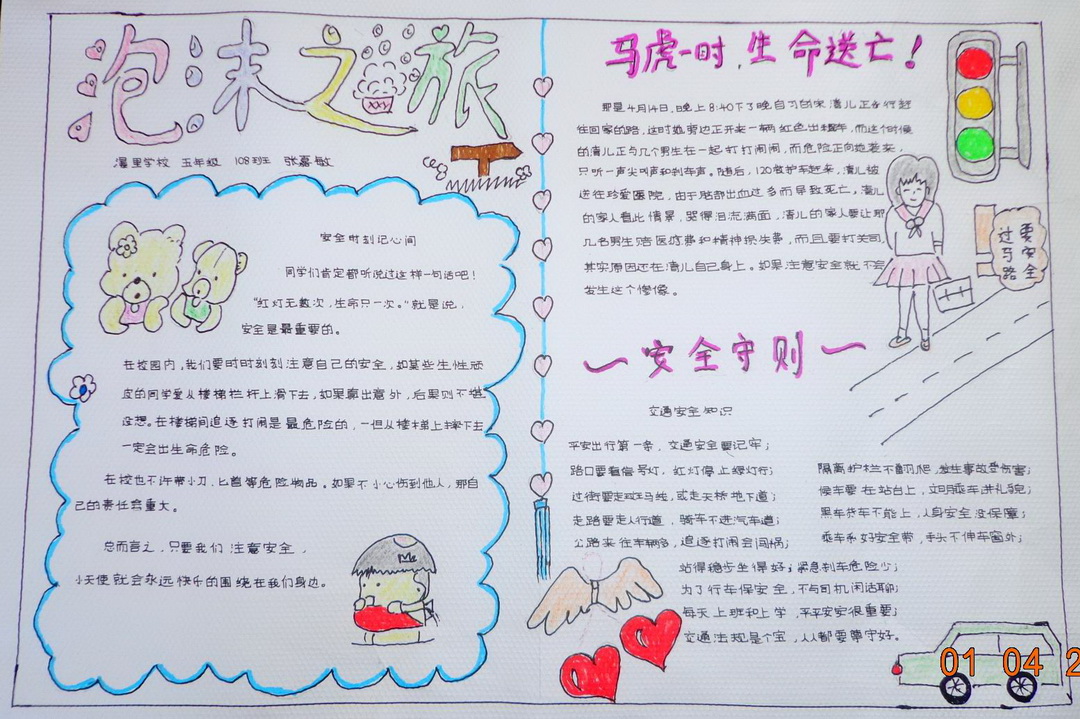 泡沫之旅
灞里学校 五年级 108班 张嘉敏
安全时刻记心间
同学们肯定都听说过这样一句话吧！
“红灯无数次，生命只一次。”就是说，
安全是最重要的。
在校园内，我们要时时刻刻注意自己的安全，如某些生性顽
皮的同学爱从楼梯栏杆上滑下去，如果靠出意外，后果则不堪
设想。在楼梯间追逐打闹是最危险的，一但从楼梯上摔下去
一定会出生命危险。
在校也不许带小刀、匕首等危险物品。如果不小心伤到他人，那自
己的责任会重大。
总而言之，只要我们注意安全，
小天使就会永远快乐的围绕在我们身边。
马虎一时，生命送亡！
那是4月14日，晚上8:40下了晚自习的宋清儿正步行赶
往回家的路，这时她旁边正开来一辆红色出租车，而这个时候
的清儿正与几个男生在一起打打闹闹，而危险正向她袭来，
只听一声尖叫声和刹车声。随后，120救护车赶来，清儿被
送往珍爱医院，由于脑部出血过多而导致死亡，清儿
的家人看此情景，哭得泪流满面，清儿的家人要让那
几名男生赔医疗费和精神损失费，而且要打关司，
其实原因还在清儿自己身上。如果注意安全就不会
发生这个惨像。
要安全
过马路
安全守则
交通安全知识
平安出行第一条，交通安全要记牢；
路口要看信号灯，红灯停止绿灯行；
过街要走斑马线，或走天桥地下道；
走路要走人行道，骑车不进汽车道；
公路来往车辆多，追逐打闹会闯祸；
站得稳步坐得好，紧急刹车危险少；
为了行车保安全，不与司机闲话聊；
每天上班和上学，平平安安很重要；
交通法规是个宝，人人都要遵守好。
隔离护栏不翻爬，发生事故受伤害；
候车要在站台上，文明乘车讲礼貌；
黑车货车不能上，人身安全没保障；
乘车系好安全带，手头不伸车窗外；
01 04 2